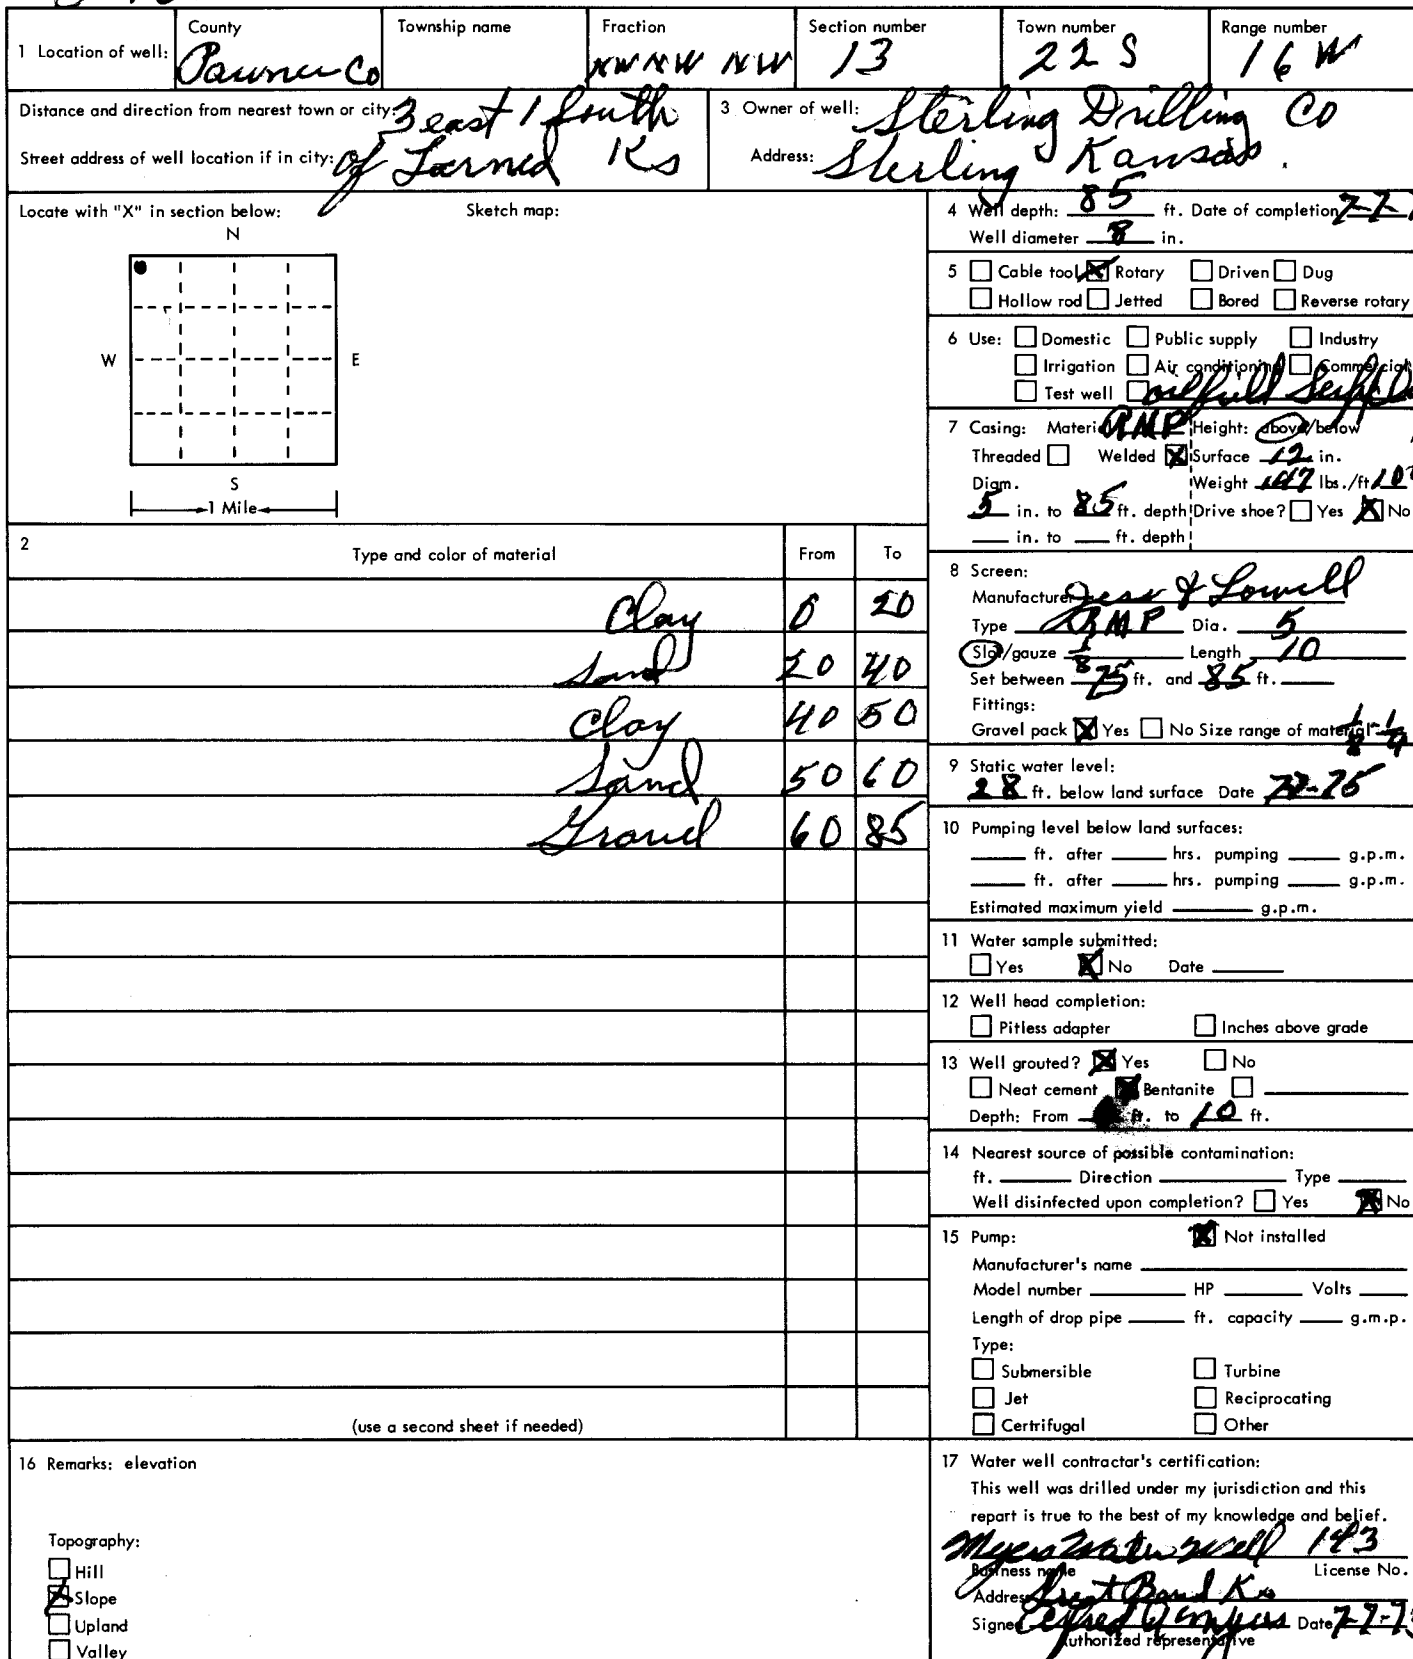 1 Location of well: County Pawnee Co Township name Fraction NW NW NW Section number 13 Town number 22 S Range number 16 W
Distance and direction from nearest town or city: 3 east 1 South
Street address of well location if in city: of Larned Ks
3 Owner of well: Sterling Drilling Co
Address: Sterling Kansas.
Locate with "X" in section below: Sketch map:
N
W E
S
1 Mile
4 Well depth: 85 ft. Date of completion 7-7-
Well diameter 8 in.
5 Cable tool Rotary Driven Dug
Hollow rod Jetted Bored Reverse rotary
6 Use: Domestic Public supply Industry
Irrigation Air conditioning Commercial
Test well oilfield
7 Casing: Material RMP Height: above/below
Threaded Welded Surface 12 in.
Diam. Weight lbs./ft.
5 in. to 85 ft. depth Drive shoe? Yes No
in. to ft. depth
2 Type and color of material From To
Clay 0 20
Sand 20 40
Clay 40 50
Sand 50 60
Gravel 60 85
(use a second sheet if needed)
8 Screen:
Manufacturer Jess & Lowell
Type RMP Dia. 5
Slot/gauze 1/8 Length 10
Set between 75 ft. and 85 ft.
Fittings:
Gravel pack Yes No Size range of material 1/8-1/4
9 Static water level:
28 ft. below land surface Date
10 Pumping level below land surfaces:
ft. after hrs. pumping g.p.m.
ft. after hrs. pumping g.p.m.
Estimated maximum yield g.p.m.
11 Water sample submitted:
Yes No Date
12 Well head completion:
Pitless adapter Inches above grade
13 Well grouted? Yes No
Neat cement Bentanite
Depth: From ft. to 10 ft.
14 Nearest source of possible contamination:
ft. Direction Type
Well disinfected upon completion? Yes No
15 Pump: Not installed
Manufacturer's name
Model number HP Volts
Length of drop pipe ft. capacity g.m.p.
Type:
Submersible Turbine
Jet Reciprocating
Certrifugal Other
16 Remarks: elevation
Topography:
Hill
Slope
Upland
Valley
17 Water well contractar's certification:
This well was drilled under my jurisdiction and this
repart is true to the best of my knowledge and belief.
Myers Water Well 143
Business name License No.
Address Great Bend Ks
Signed Alfred Myers Date 7-7-75
Authorized representative